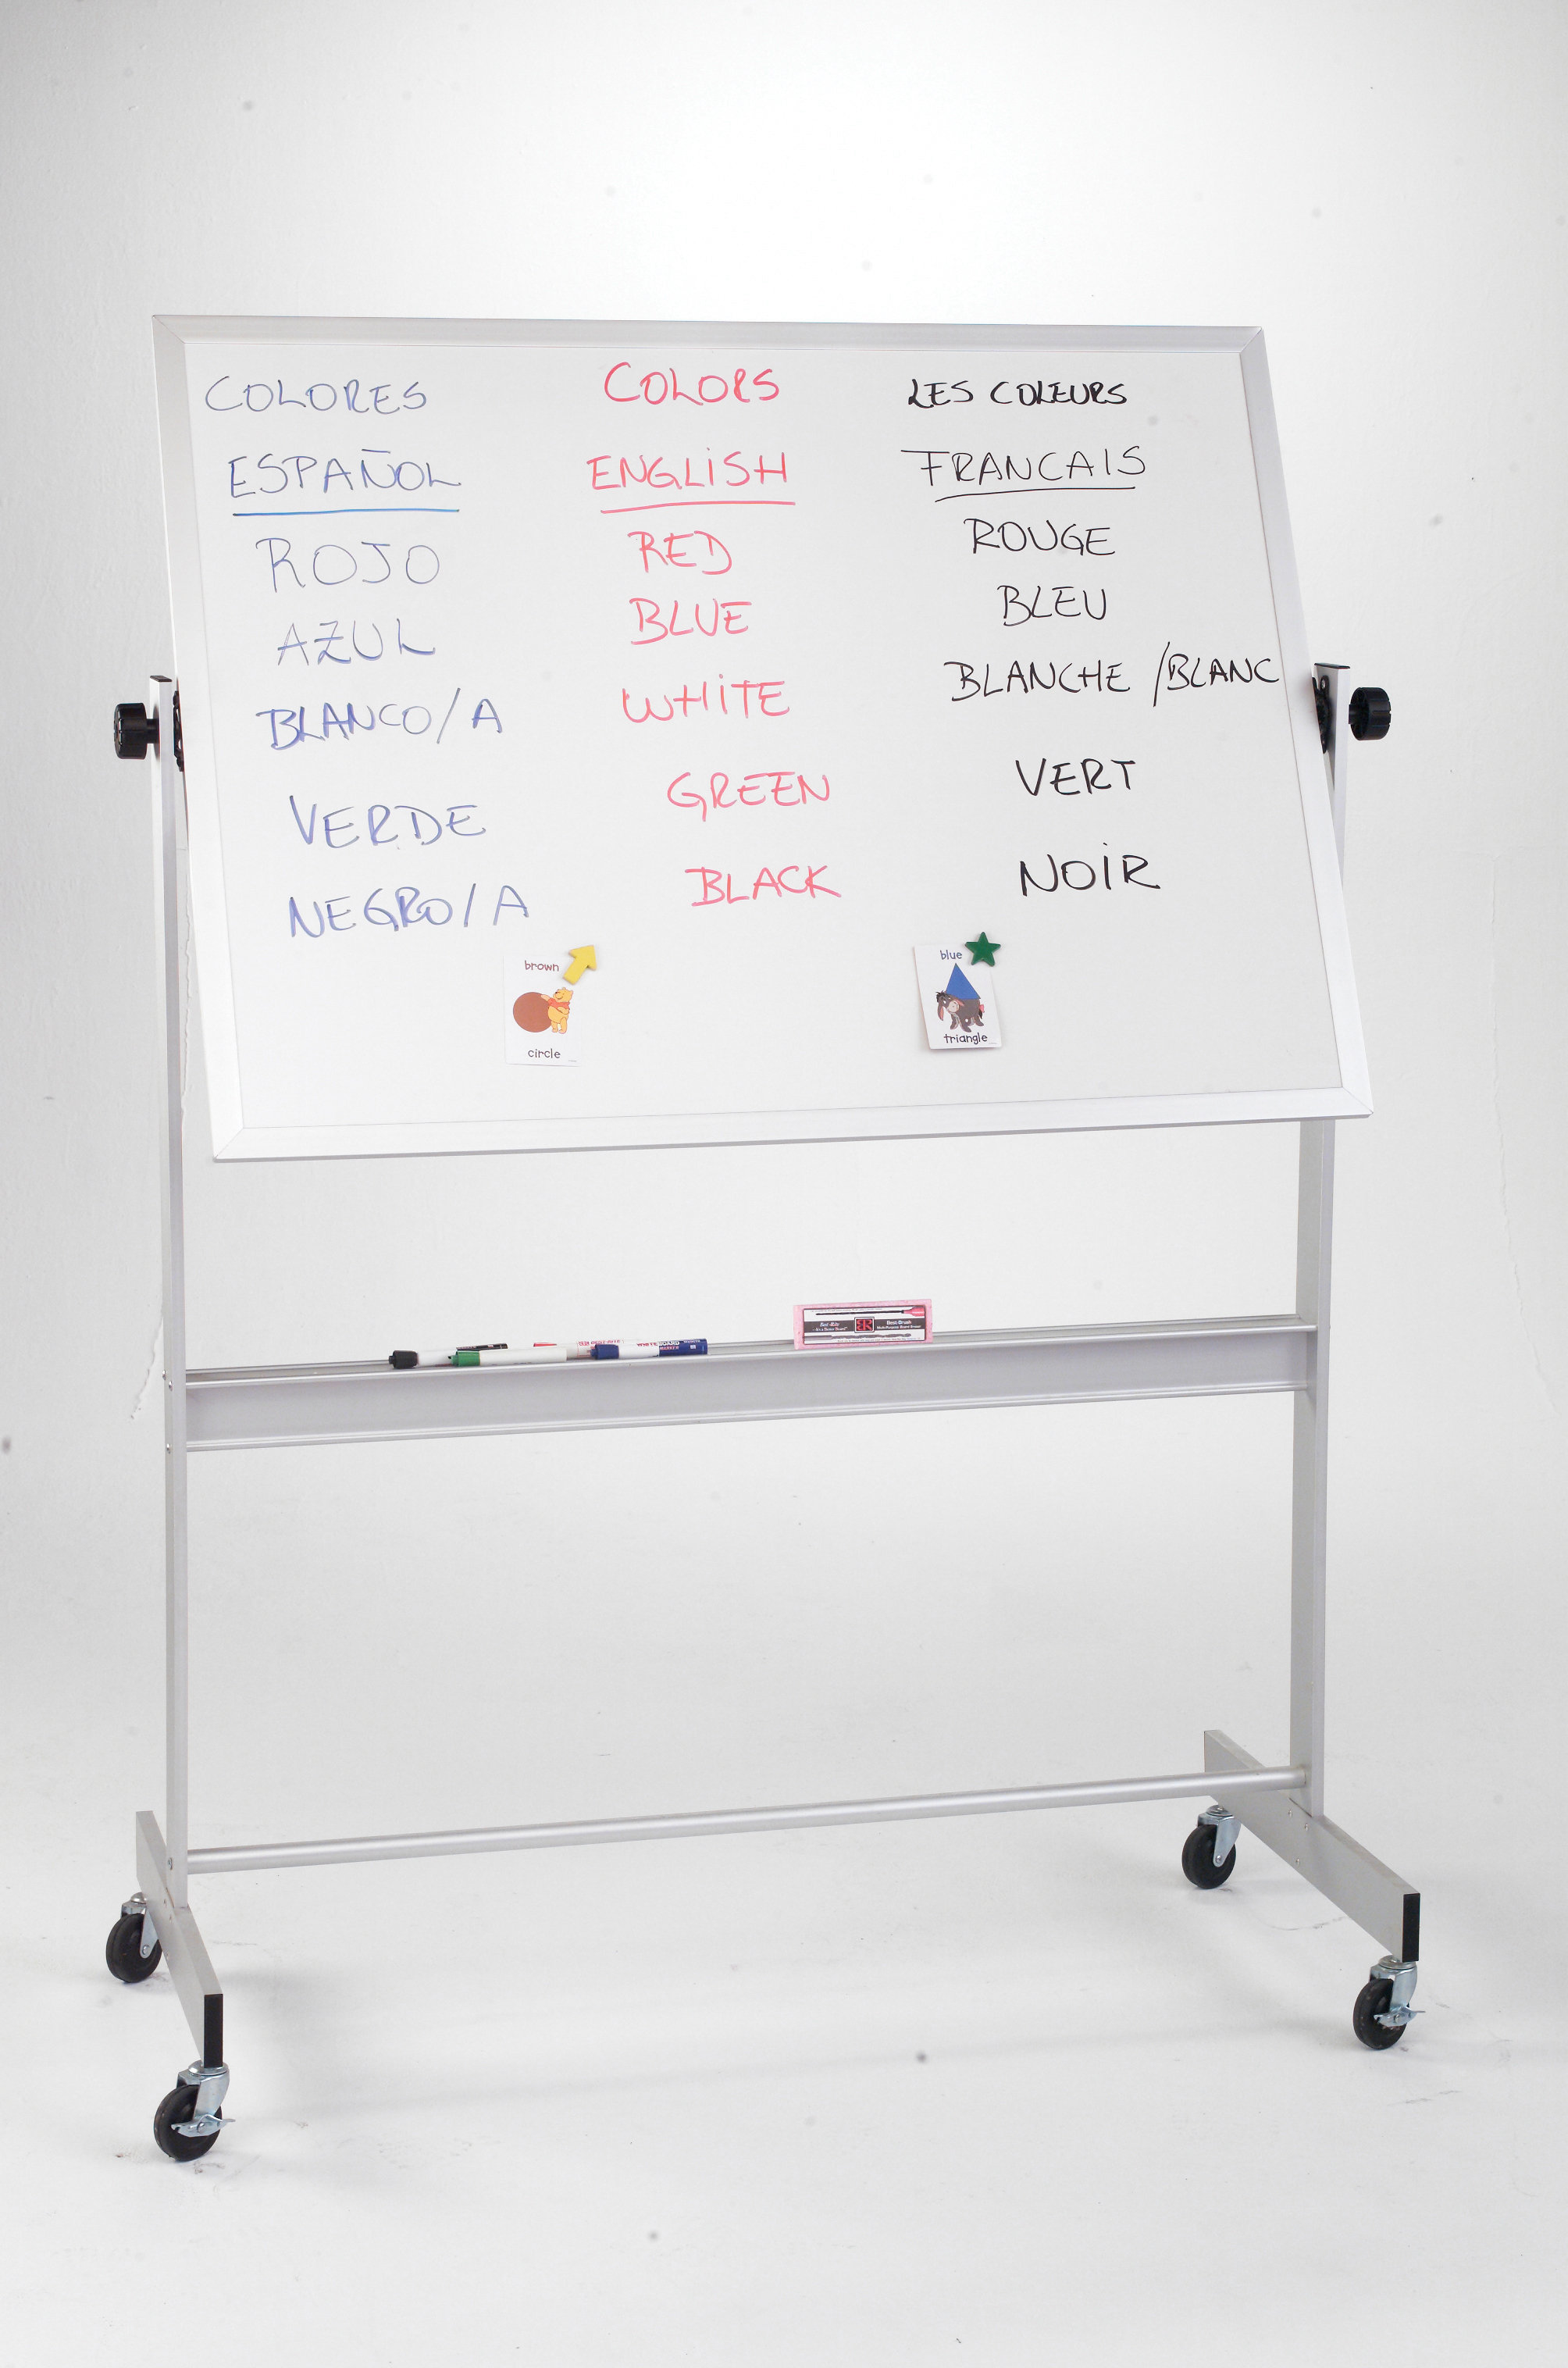 COLORES
ESPAÑOL
ROJO
AZUL
BLANCO/A
VERDE
NEGRO/A
COLORS
ENGLISH
RED
BLUE
WHITE
GREEN
BLACK
LES COLEURS
FRANCAIS
ROUGE
BLEU
BLANCHE /BLANC
VERT
NOIR
brown
circle
blue
triangle